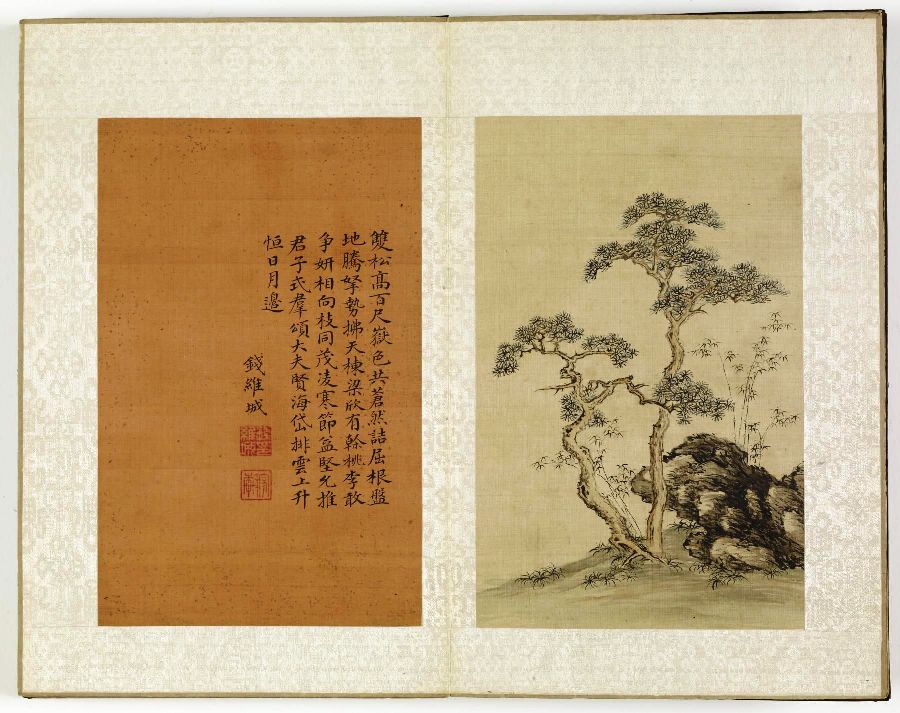 雙松高百尺嶽色共蒼然詰屈根盤
地騰拏勢拂天棟梁欣有榦桃李敢
爭妍相向枝同茂凌寒節益堅允推
君子式羣頌大夫賢海岱排雲上升
恒日月邊
錢維城